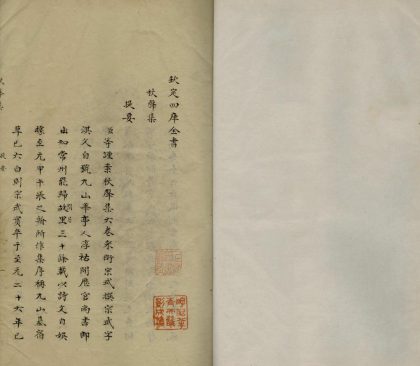 欽定四庫全書
秋聲集
提要
臣等謹案秋聲集六卷宋衛宗武撰宗武字
淇父自號九山華亭人淳祐間歷官尚書郎
出知常州罷歸故里三十餘載以詩文自娛
據至元甲午張之翰所作集序稱九山墓宿
草已六白則宗武實卒于至元二十六年己
提要